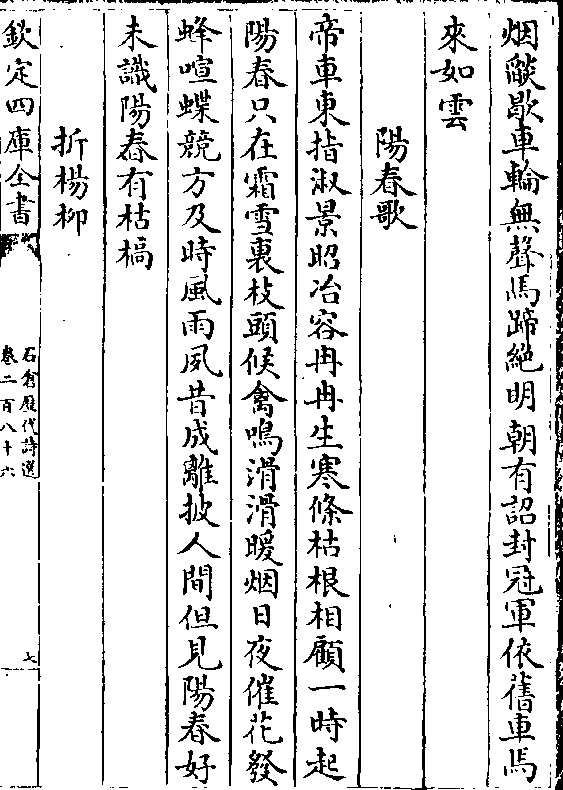 烟𦦨歇車輪無聲馬蹄絕明朝有詔封冠軍依舊車馬
來如雲
陽春歌
帝車東指淑景昭冶容冉冉生寒條枯根相顧一時起
陽春只在霜雪裏枝頭候禽鳴滑滑暖烟日夜催花發
蜂喧蝶競方及時風雨夙昔成離披人間但見陽春好
未識陽春有枯槁
折楊柳
欽定四庫全書
石倉歷代詩選
卷二百八十六
七